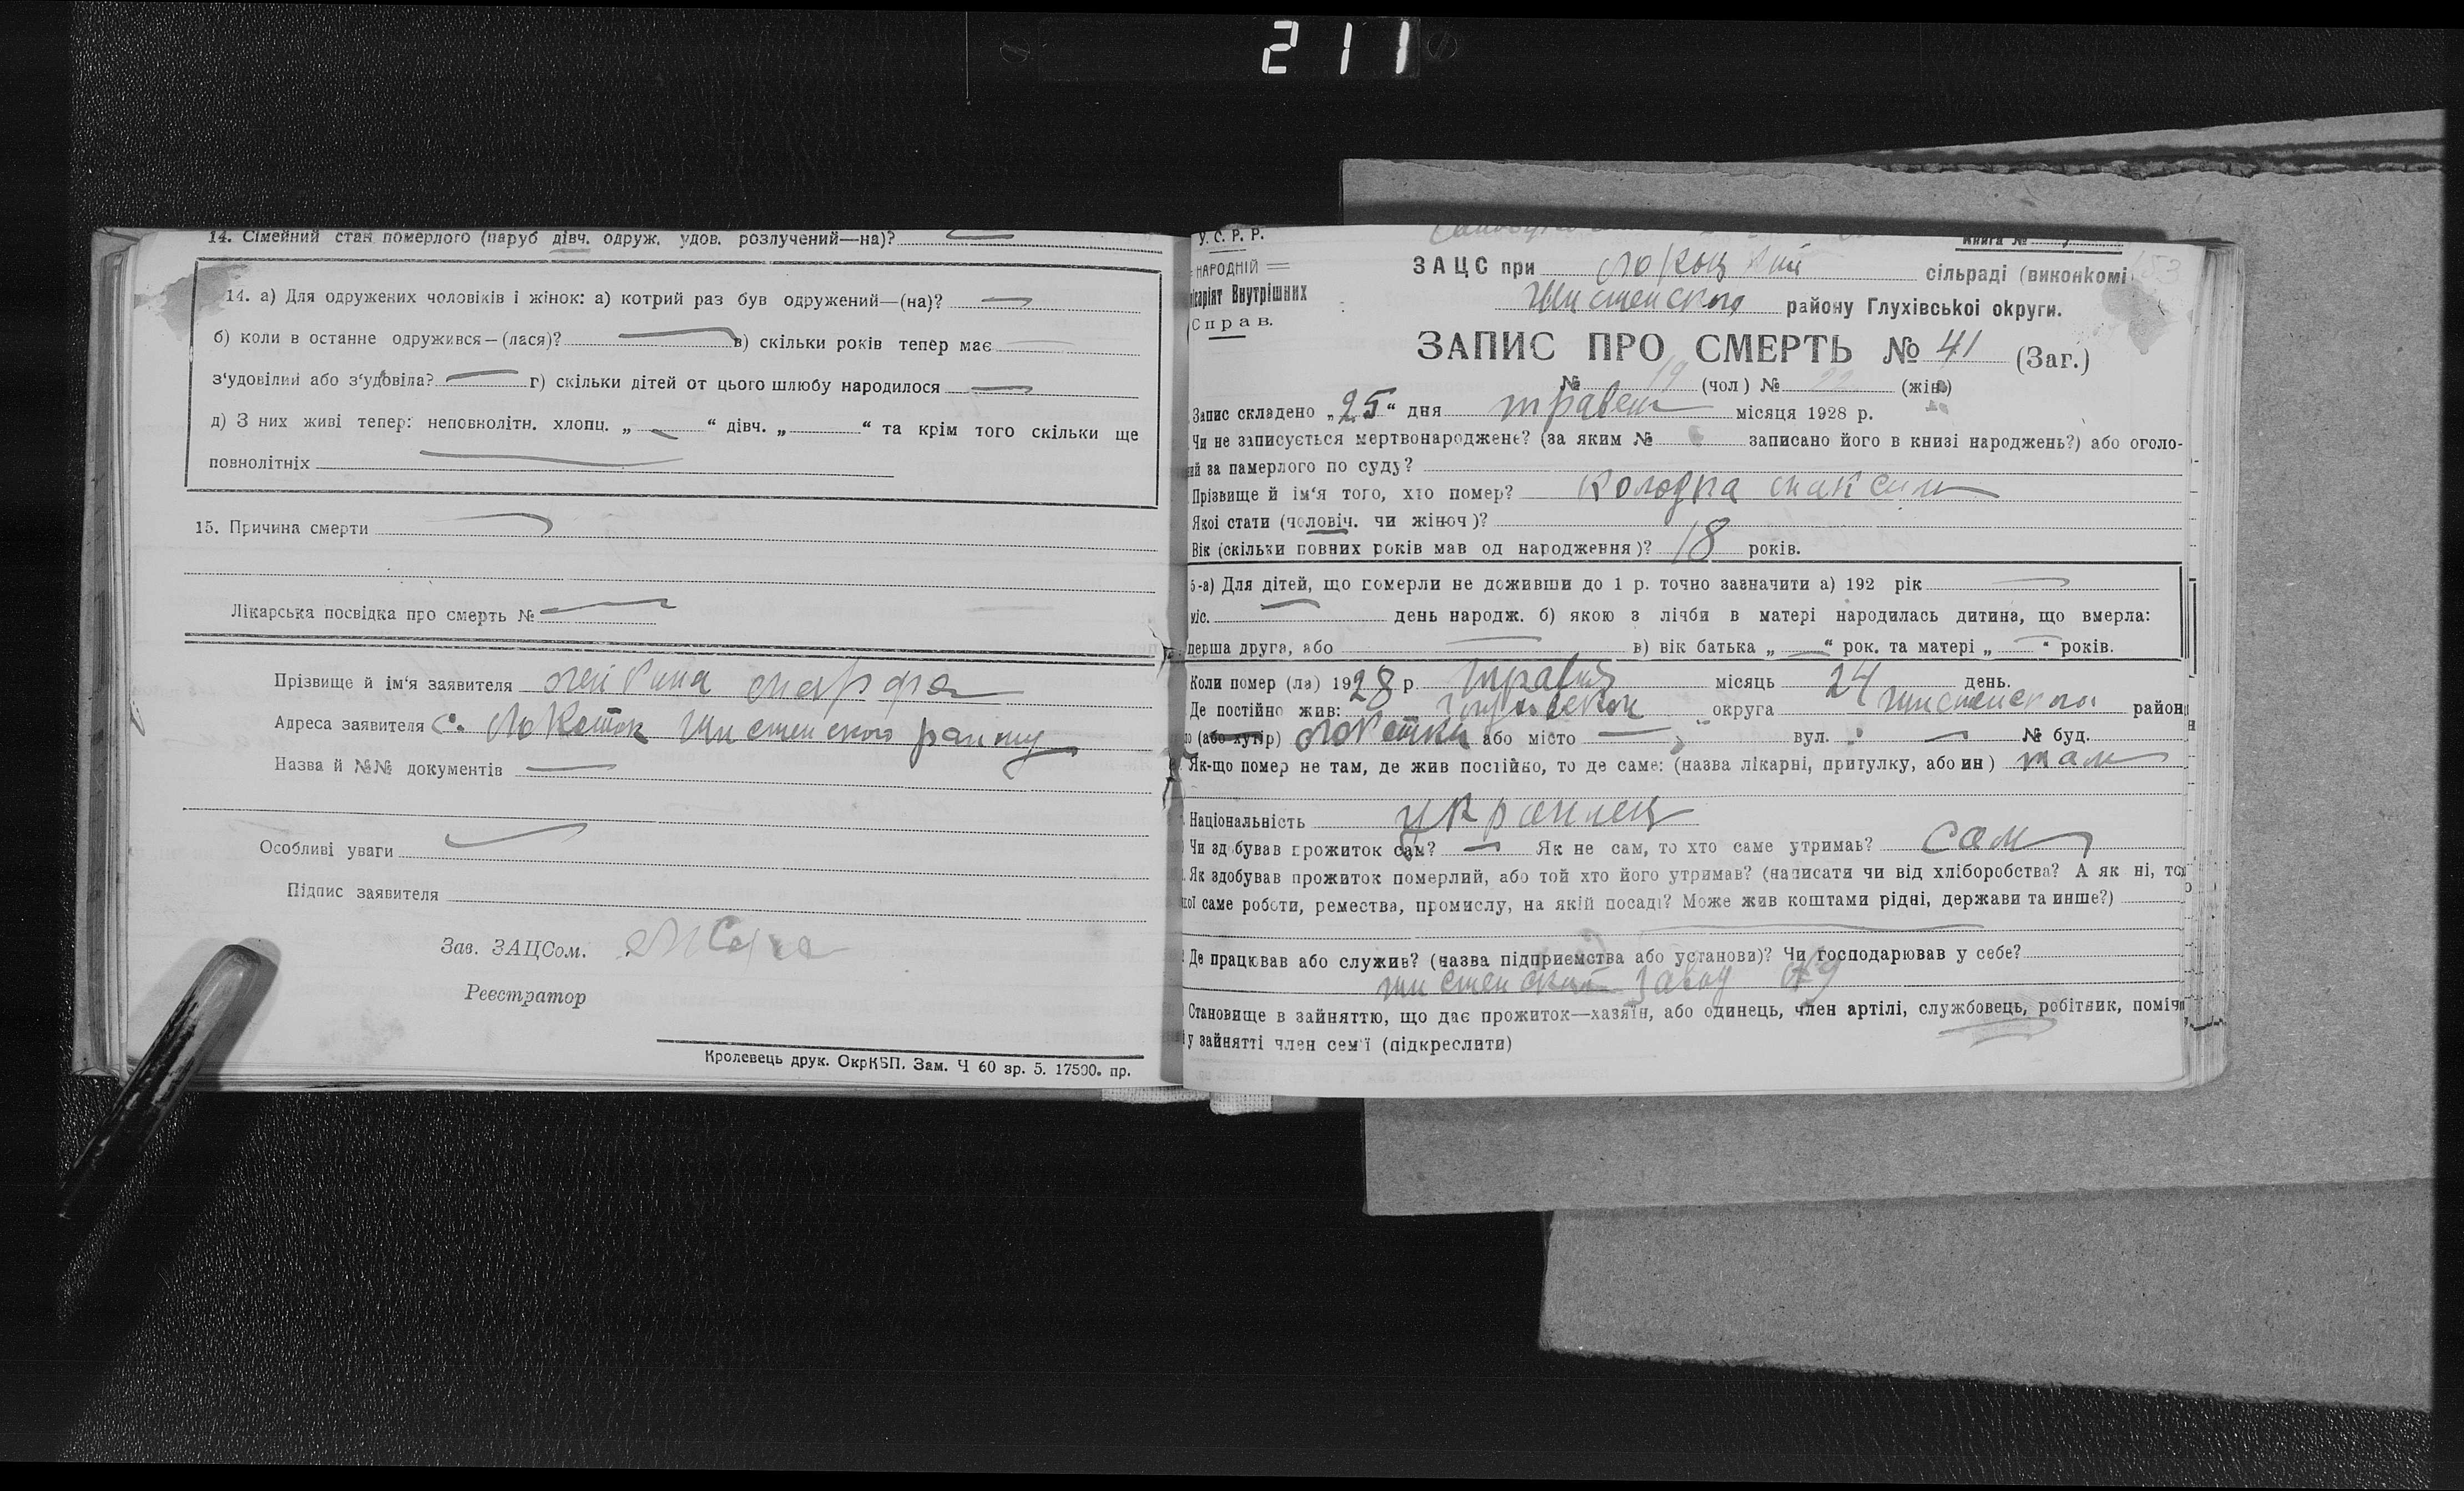 211
14. Сімейний стан померлого (паруб дівч. одруж. удов. розлучений—на)?
14. а) Для одружених чоловіків і жінок: а) котрий раз був одружений—(на)?
б) коли в останне одружився—(лася)? в) скільки років тепер має
з'удовілий або з'удовіла? г) скільки дітей от цього шлюбу народилося
д) З них живі тепер: неповнолітн. хлопц. „ “ дівч. „ “ та крім того скільки ще
повнолітніх
15. Причина смерти
Лікарська посвідка про смерть №
Прізвище й ім'я заявителя
Адреса заявителя с. Локоток Шистенского району
Назва й №№ документів
Особливі уваги
Підпис заявителя
Зав. ЗАЦСом.
Реєстратор
Кролевець друк. ОкрКБП. Зам. Ч 60 зр. 5. 17500. пр.
У. С. Р. Р.
Книга №
НАРОДНІЙ
ЗАЦС при сільраді (виконкомі
ісаріят Внутрішних
Шистенского району Глухівської округи.
Справ.
ЗАПИС ПРО СМЕРТЬ № 41 (Заг.)
№ 19 (чол) № 22 (жін)
Запис складено „25“ дня травень місяця 1928 р.
Чи не записується мертвонароджене? (за яким № записано його в книзі народжень?) або оголо-
ий за памерлого по суду?
Прізвище й ім'я того, хто помер? Колодка Максим
Якої стати (человіч. чи жіноч)?
Вік (скільки повних років мав од народження)? 18 років.
5-а) Для дітей, що померли не доживши до 1 р. точно зазначити а) 192 рік
міс. день народж. б) якою з лічби в матері народилась дитина, що вмерла:
перша друга, або в) вік батька „ “ рок. та матері „ “ років.
Коли помер (ла) 1928 р. місяць 24 день.
Де постійно жив: округа Шистенского район
(або хутір) або місто вул. № буд.
Як-що помер не там, де жив постійно, то де саме: (назва лікарні, притулку, або ин) там
Національність украинец
Чи здобував прожиток сам? Як не сам, то хто саме утримав? Сам
Як здобував прожиток померлий, або той хто його утримав? (написати чи від хліборобства? А як ні, то
кої саме роботи, ремества, промислу, на якій посаді? Може жив коштами рідні, держави та инше?)
Де працював або служив? (назва підприємства або установи)? Чи господарював у себе?
Шистенский завод № 9
Становище в зайняттю, що дає прожиток—хазяїн, або одинець, член артілі, службовець, робітник, поміч
у зайнятті член сем'ї (підкреслити)